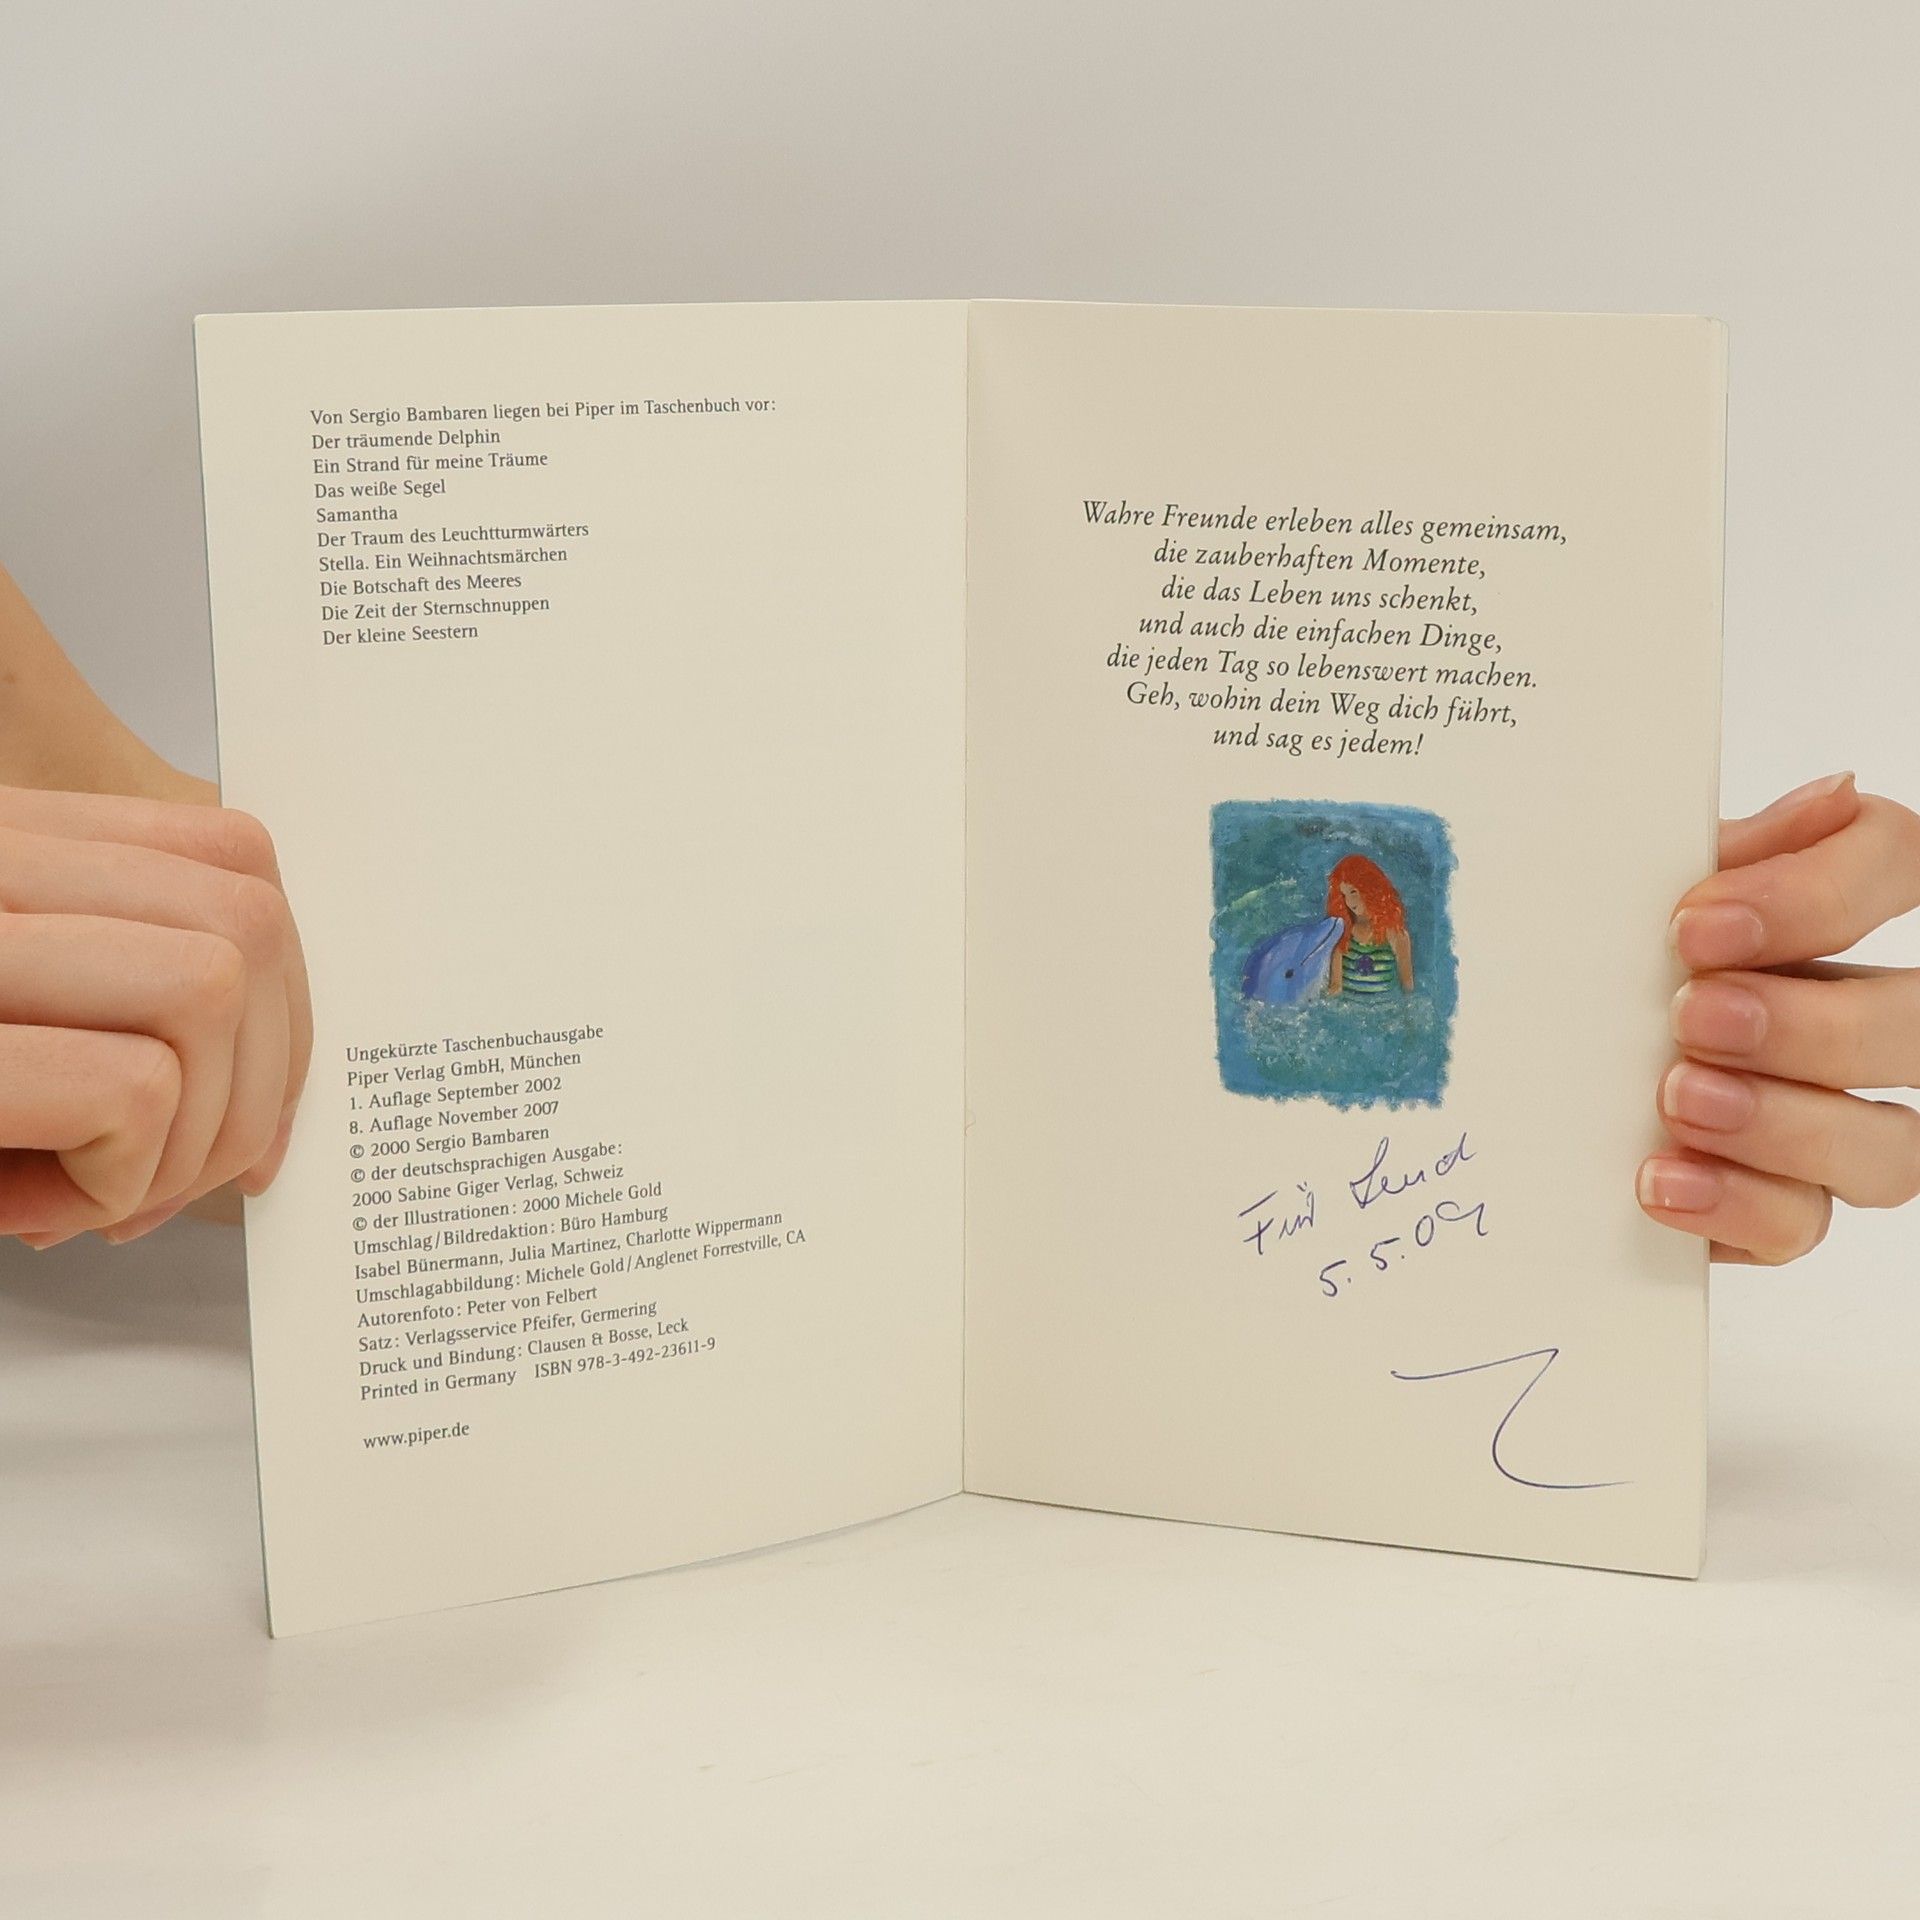 Von Sergio Bambaren liegen bei Piper im Taschenbuch vor:
Der träumende Delphin
Ein Strand für meine Träume
Das weiße Segel
Samantha
Der Traum des Leuchtturmwärters
Stella. Ein Weihnachtsmärchen
Die Botschaft des Meeres
Die Zeit der Sternschnuppen
Der kleine Seestern
Ungekürzte Taschenbuchausgabe
Piper Verlag GmbH, München
1. Auflage September 2002
8. Auflage November 2007
© 2000 Sergio Bambaren
© der deutschsprachigen Ausgabe:
2000 Sabine Giger Verlag, Schweiz
© der Illustrationen: 2000 Michele Gold
Umschlag/Bildredaktion: Büro Hamburg
Isabel Bünermann, Julia Martinez, Charlotte Wippermann
Umschlagabbildung: Michele Gold/Anglenet Forrestville, CA
Autorenfoto: Peter von Felbert
Satz: Verlagsservice Pfeifer, Germering
Druck und Bindung: Clausen & Bosse, Leck
Printed in Germany ISBN 978-3-492-23611-9
www.piper.de
Wahre Freunde erleben alles gemeinsam,
die zauberhaften Momente,
die das Leben uns schenkt,
und auch die einfachen Dinge,
die jeden Tag so lebenswert machen.
Geh, wohin dein Weg dich führt,
und sag es jedem!
Für
5. 5. 09